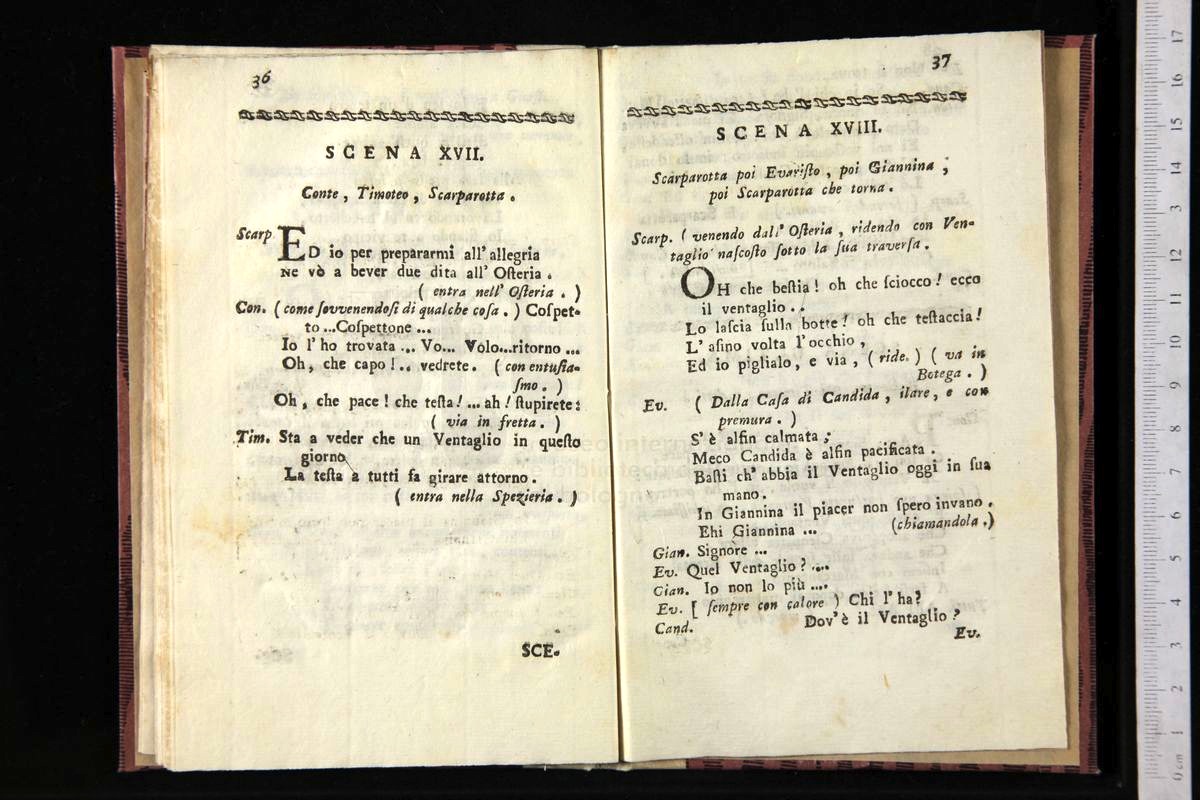 36
SCENA XVII.
Conte, Timoteo, Scarparotta.
Scarp ED io per prepararmi all' allegria
ne vò a bever due dita all' Oſteria.
( entra nell' Oſteria. )
Con. ( come ſovvenendoſi di qualche coſa. ) Coſpet-
to ...Coſpettone ...
Io l' ho trovata ... Vo... Volo...ritorno ...
Oh, che capo!.. vedrete. ( con entuſia-
ſmo. )
Oh, che pace! che teſta! ... ah! ſtupirete:
( via in fretta. )
Tim. Sta a veder che un Ventaglio in queſto
giorno
La teſta a tutti fa girare attorno.
( entra nella Spezieria. )
SCE-
37
SCENA XVIII.
Scarparotta poi Evariſto, poi Giannina,
poi Scarparotta che torna.
Scarp. ( venendo dall' Oſteria, ridendo con Ven-
taglio naſcoſto ſotto la ſua traverſa.
OH che beſtia! oh che ſciocco! ecco
il ventaglio..
Lo laſcia ſulla botte! oh che teſtaccia!
L' aſino volta l' occhio,
Ed io piglialo, e via, ( ride. ) ( va in
Botega. )
Ev. ( Dalla Caſa di Candida, ilare, e con
premura. )
S' è alfin calmata;
Meco Candida è alfin pacificata.
Baſti ch' abbia il Ventaglio oggi in ſua
mano.
In Giannina il piacer non ſpero invano.
Ehi Giannina ... (chiamandola.)
Gian. Signore ...
Ev. Quel Ventaglio? ....
Gian. Io non lo più ....
Ev. [ ſempre con calore ) Chi l' ha?
Cand. Dov' è il Ventaglio?
Ev.
0 cm 1 2 3 4 5 6 7 8 9 10 11 12 13 14 15 16 17